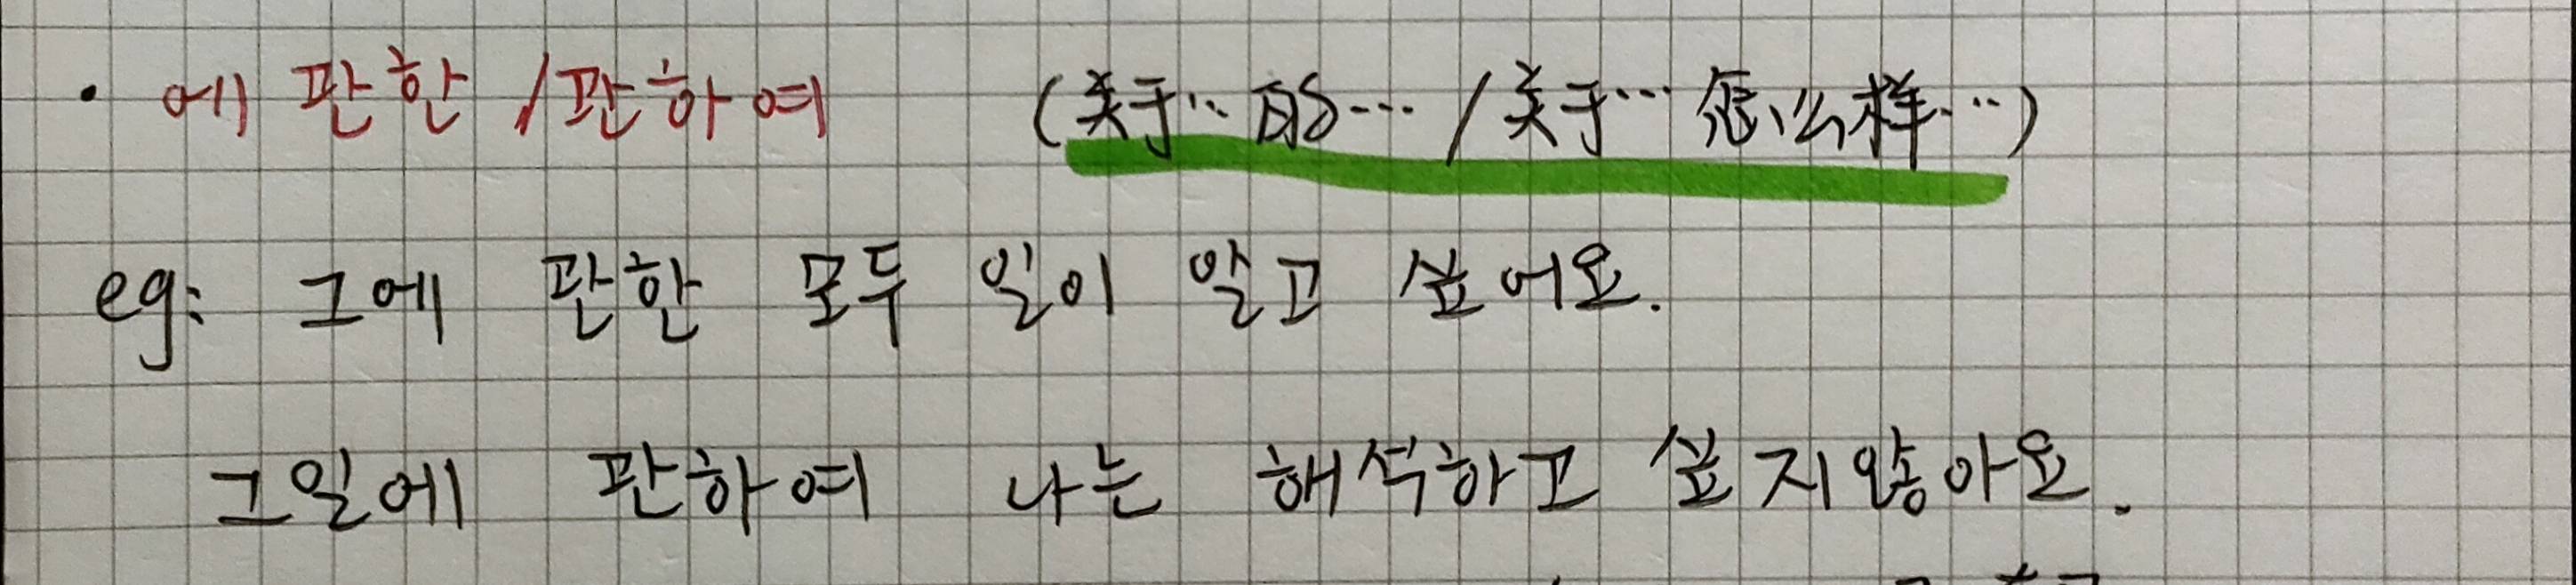 · 에 관한 /관하여 (关于… 的… / 关于… 怎么样…)
eg: 그에 관한 모두 일이 알고 싶어요.
그일에 관하여 나는 해석하고 싶지않아요.